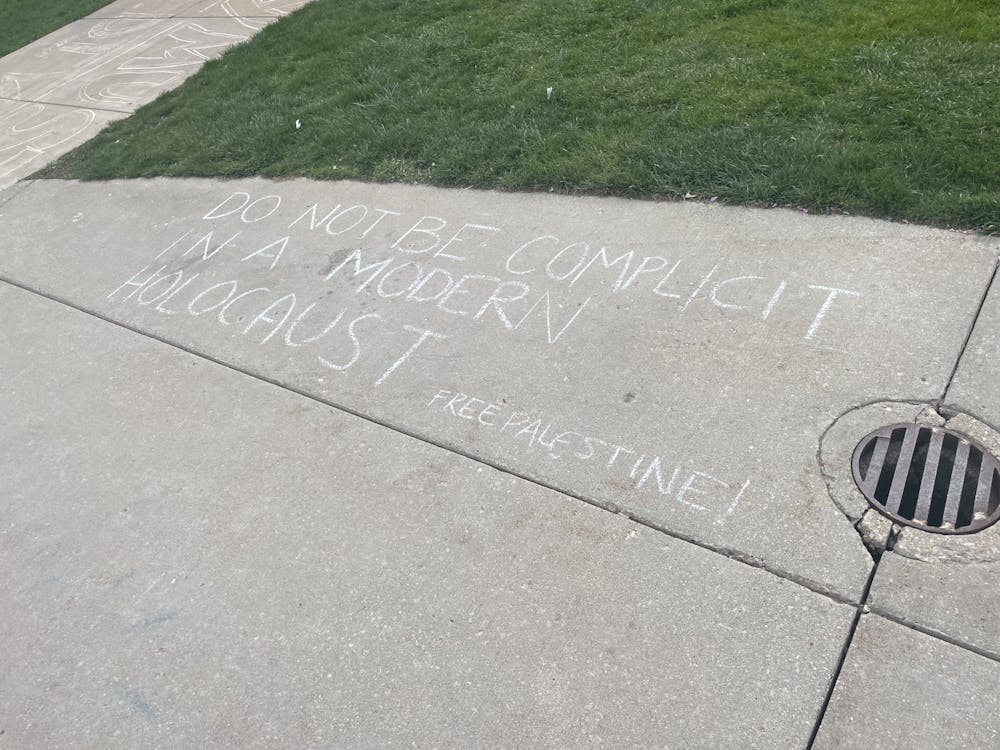 DO NOT BE COMPLICIT
IN A MODERN
HOLOCAUST
FREE PALESTINE!